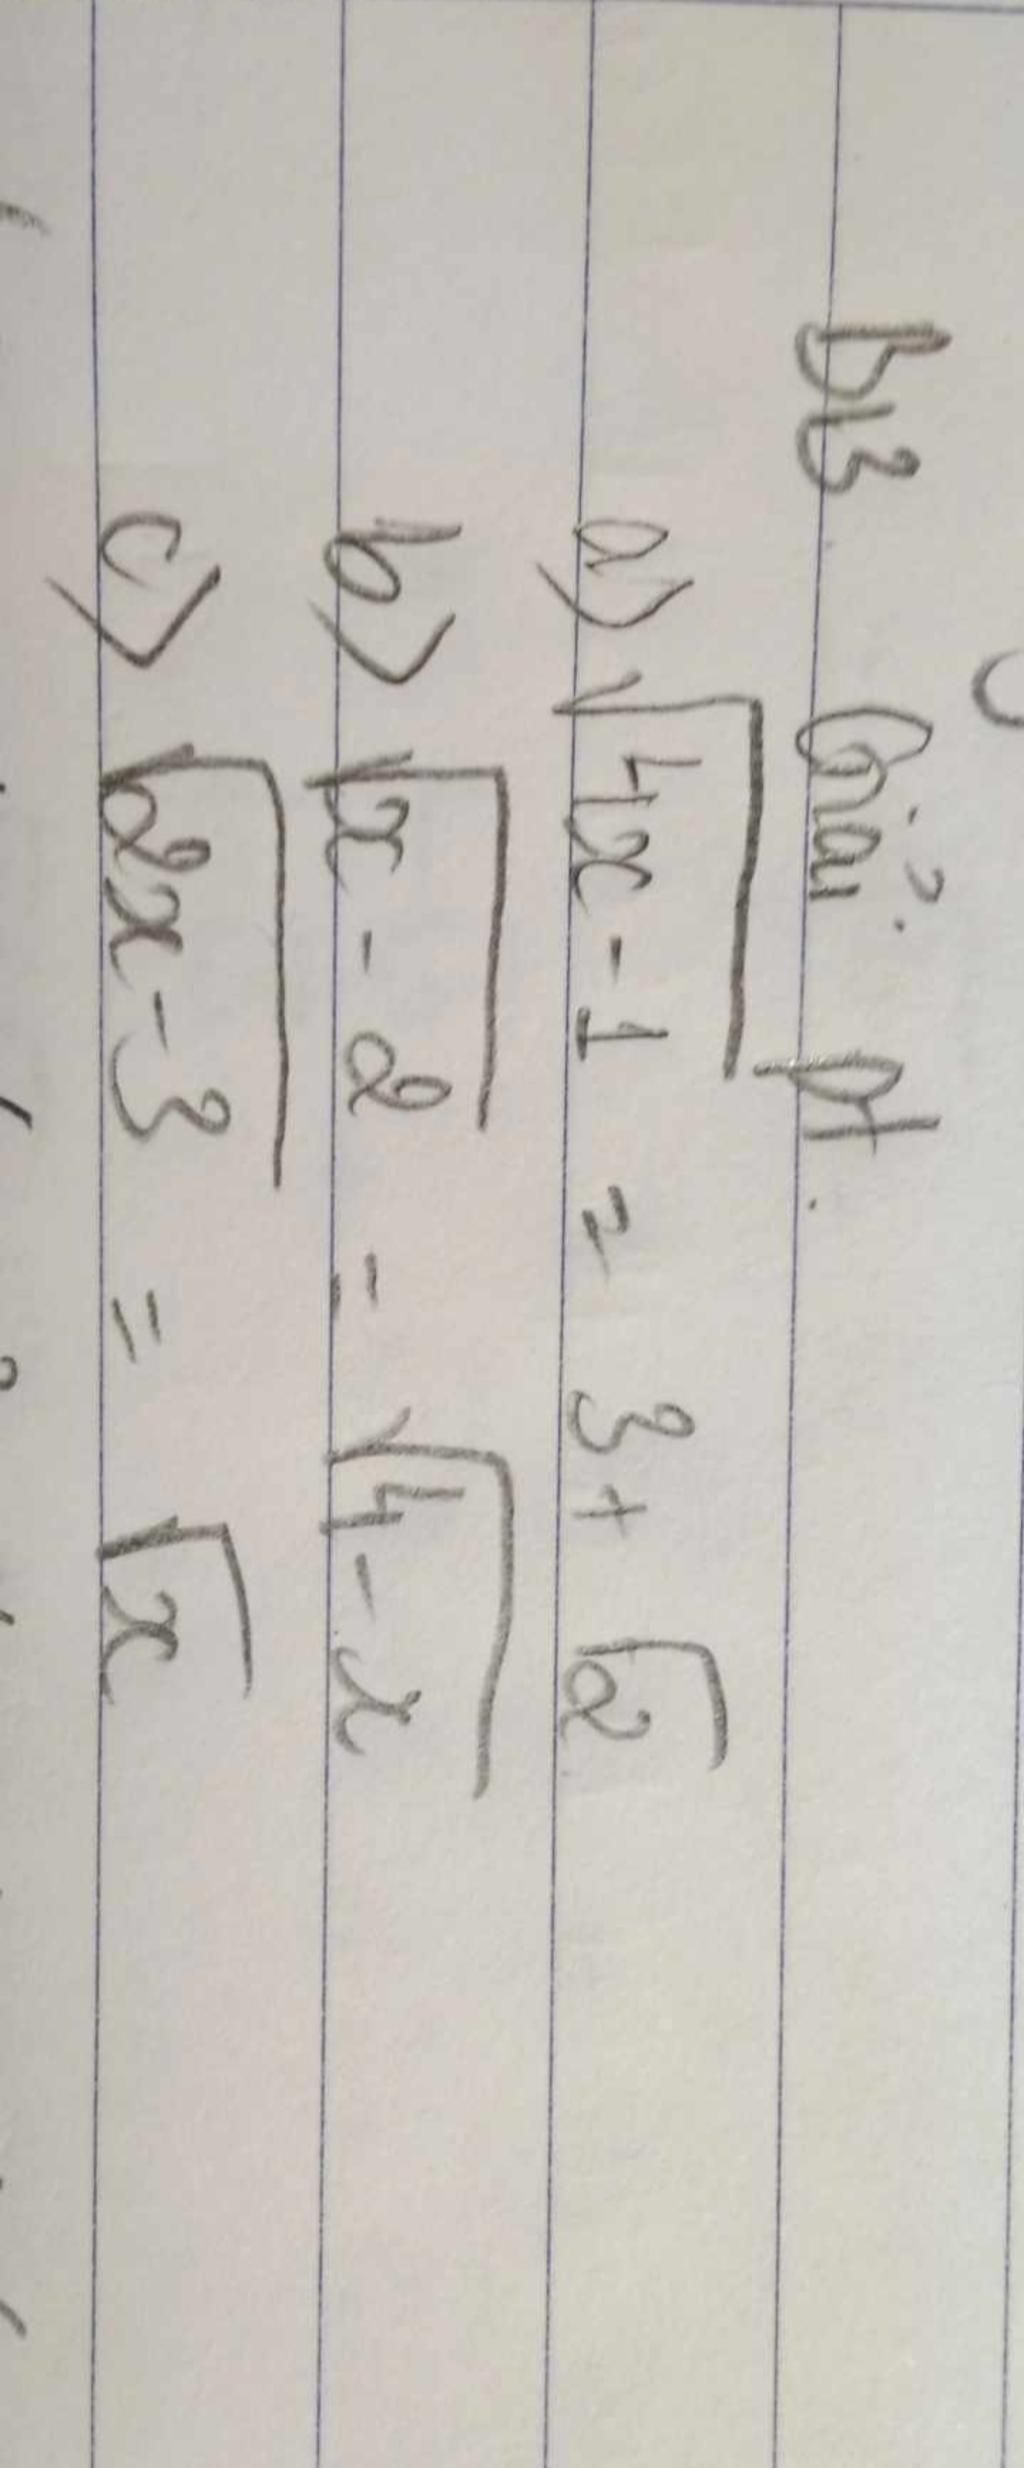 bt3 Giải pt.
a) √(4x - 1) = 3 + √2
b) √(x - 2) = √(4 - x)
c) √(2x - 3) = √x